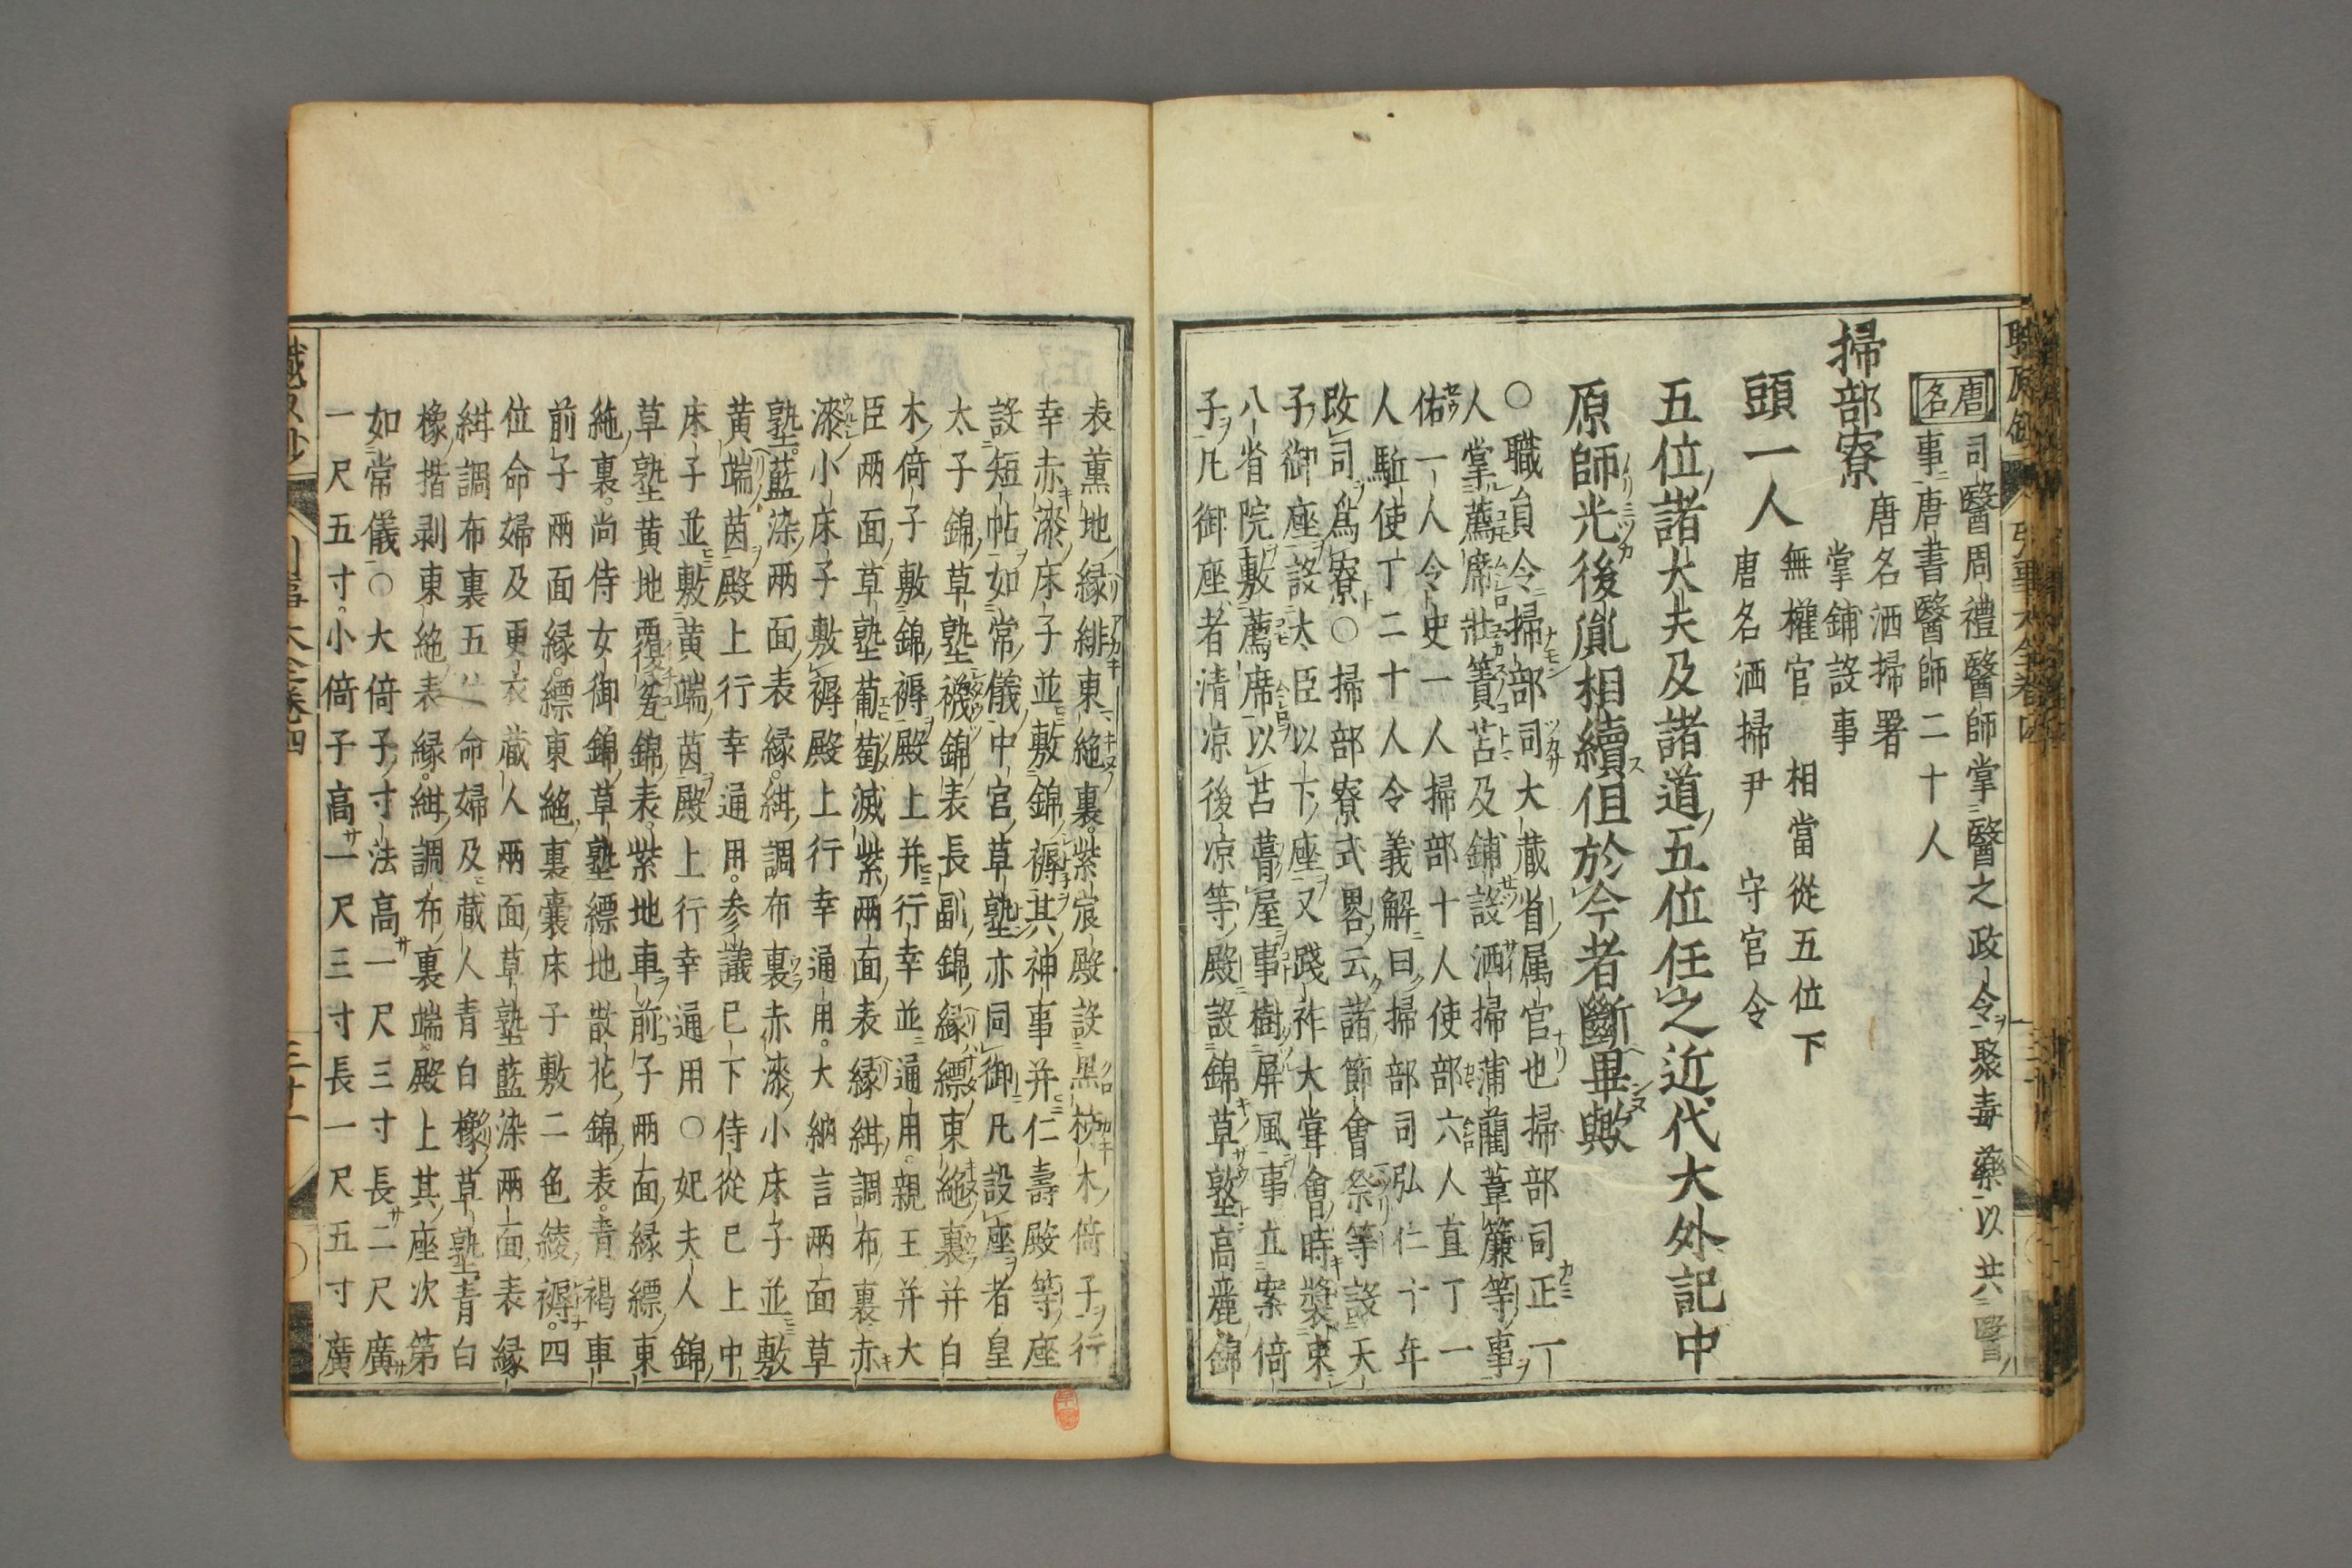 唐名
司醫周禮醫師掌醫之政令聚毒藥以共醫
事唐書醫師二十人
掃部寮
唐名洒掃署
掌鋪設事
頭一人
無權官 相當從五位下
唐名洒掃尹 守宮令
五位諸大夫及諸道五位任之近代大外記中
原師光後胤相續但於今者斷畢歟
○職員令掃部司大蔵省属官也掃部司正一
人掌薦席牀簀苫及鋪設洒掃蒲藺葦簾等事
佑一人令史一人掃部十人使部六人直丁一
人駈使丁二十人令義解曰掃部司弘仁十年
改司爲寮○掃部寮式畧云諸節會祭等設天
子御座設大臣以下座又踐祚大甞會時裝束
八省院敷薦席以苫葺屋事樹屏風事立案倚
子凡御座者清凉後凉等殿設錦草墪高麗錦
表薫地縁緋東絁裏紫宸殿設黒柿木倚子行
幸赤漆床子並敷錦褥其神事并仁壽殿等座
設短帖如常儀中宮草墪亦同御凡設座者皇
太子錦草墪襪錦表長副錦縁縹東絁裏并白
木倚子敷錦褥殿上并行幸並通用親王并大
臣兩面草墪葡萄滅紫兩面表縁紺調布裏赤
漆小床子敷褥殿上行幸通用大納言兩面草
墪藍染兩面表縁紺調布裏赤漆小床子並敷
黄端茵殿上行幸通用参議已下侍從已上中
床子並敷黄端茵殿上行幸通用○妃夫人錦
草墪黄地覆笂錦表紫地車前子兩面縁縹東
絁裏尚侍女御錦草墪縹地散花錦表青褐車
前子兩面縁縹東絁裏嚢床子敷二色綾褥四
位命婦及更衣蔵人兩面草墪藍染兩面表縁
紺調布裏五位命婦及蔵人青白橡草墪青白
橡揩剥東絁表縁紺調布裏端殿上其座次第
如常儀○大倚子寸法高一尺三寸長二尺廣
一尺五寸小倚子高一尺三寸長一尺五寸廣